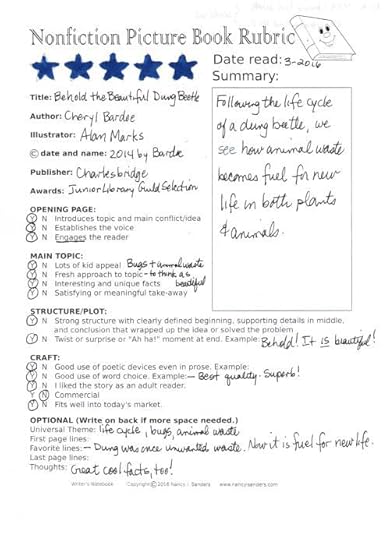 Nonfiction Picture Book Rubric
Date read: 3-2016
Summary:
Title: Behold the Beautiful Dung Beetle
Author: Cheryl Bardoe
Illustrator: Alan Marks
© date and name: 2014 by Bardoe
Publisher: Charlesbridge
Awards: Junior Library Guild Selection
Following the life cycle
of a dung beetle, we
see how animal waste
becomes fuel for new
life in both plants
& animals.
OPENING PAGE:
Y N Introduces topic and main conflict/idea
Y N Establishes the voice
Y N Engages the reader
MAIN TOPIC:
Y N Lots of kid appeal Bugs + animal waste
Y N Fresh approach to topic - to think as beautiful
Y N Interesting and unique facts
Y N Satisfying or meaningful take-away
STRUCTURE/PLOT:
Y N Strong structure with clearly defined beginning, supporting details in middle,
and conclusion that wrapped up the idea or solved the problem
Y N Twist or surprise or "Ah ha!" moment at end. Example: Behold! It is beautiful!
CRAFT:
Y N Good use of poetic devices even in prose. Example:
Y N Good use of word choice. Example: - Best quality. Superb!
Y N I liked the story as an adult reader.
Y N Commercial
Y N Fits well into today's market.
OPTIONAL (Write on back if more space needed.)
Universal Theme: life cycle, bugs, animal waste
First page lines:
Favorite lines: - Dung was once unwanted waste. Now it is fuel for new life.
Last page lines:
Thoughts: Great cool facts, too!
Writer's Notebook Copyright © 2016 Nancy I. Sanders www.nancyisanders.com